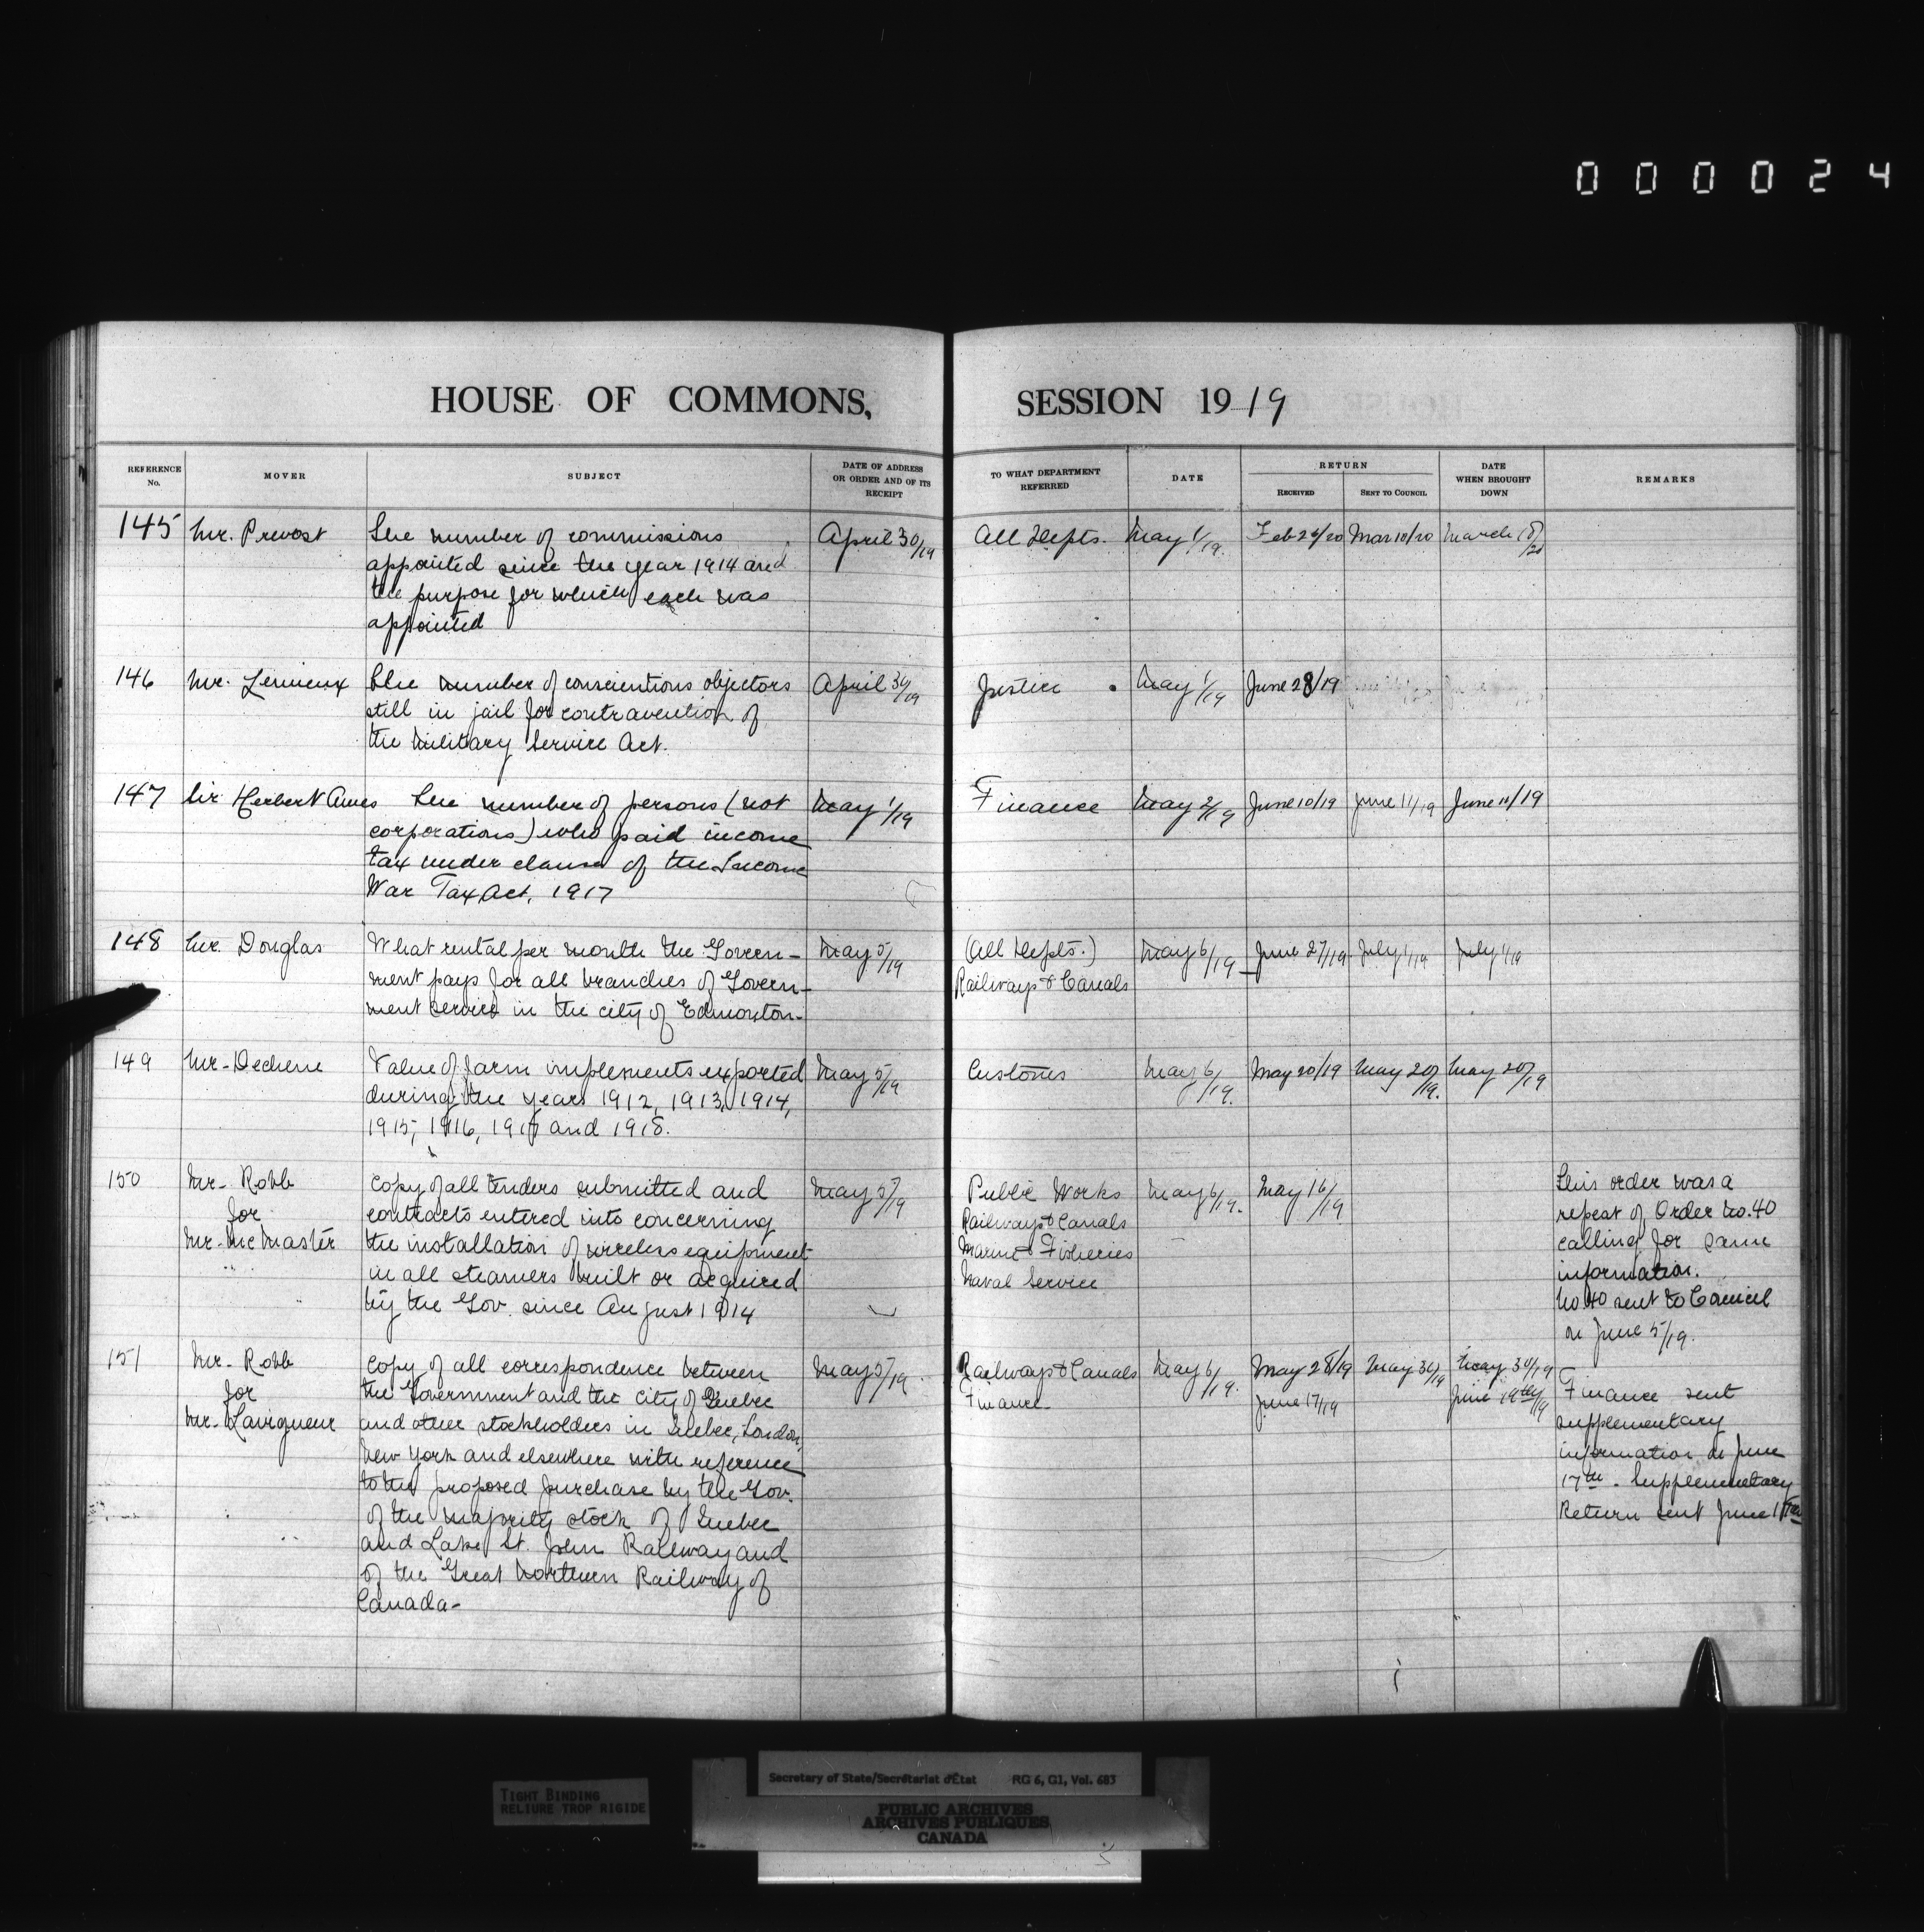 0 0 0 0 2 4
HOUSE OF COMMONS, SESSION 1919
REFERENCE No. MOVER SUBJECT DATE OF ADDRESS OR ORDER AND OF ITS RECEIPT TO WHAT DEPARTMENT REFERRED DATE RETURN RECEIVED SENT TO COUNCIL DATE WHEN BROUGHT DOWN REMARKS
145 Mr. Prevost The number of commissions April 30/19 All Depts. May 1/19. Feb 24/20 Mar 10/20 March /20
appointed since the year 1914 and
the purpose for which each was
appointed
146 Mr. Lemieux The number of conscientious objectors April 30/19 Justice May 1/19 June 28/19
still in jail for contravention of
the Military Service Act.
147 Sir Herbert Ames The number of persons (not May 1/19 Finance May 2/19 June 10/19 June 11/19 June 11/19
corporations) who paid income
tax under clause of the Income
War Tax Act, 1917
148 Mr. Douglas What rental per month the Govern- May 5/19 (All Depts.) May 6/19 June 27/19 July 1/19 July 1/19
ment pays for all branches of Govern- Railways & Canals
ment service in the city of Edmonton-
149 Mr- Dechene Value of farm implements exported May 5/19 Customs May 6/19. May 20/19 May 20/19. May 20/19
during the years 1912, 1913, 1914,
1915, 1916, 1917 and 1918.
150 Mr- Robb Copy of all tenders submitted and May 5/19 Public Works May 6/19. May 16/19 This order was a
for contracts entered into concerning Railways & Canals repeat of Order No. 40
Mr- McMaster the installation of wireless equipment Marine & Fisheries calling for same
in all steamers built or acquired Naval Service information.
by the Gov. since August 1914 No. 40 sent to Council
on June 5/19.
151 Mr- Robb Copy of all correspondence between May 5/19. Railways & Canals May 6/19. May 28/19 May 30/19 May 30/19
for the Government and the city of Quebec Finance- June 17/19 June 19th/19 Finance sent
Mr- Lavigueur and other stockholders in Quebec, London, supplementary
New York and elsewhere with reference information on June
to the proposed purchase by the Gov. 17th- Supplementary
of the majority stock of Quebec Return sent June
and Lake St. John Railway and
of the Great Northern Railway of
Canada-
TIGHT BINDING
RELIURE TROP RIGIDE
Secretary of State/Secrétariat d'État RG 6, G1, Vol. 683
PUBLIC ARCHIVES
ARCHIVES PUBLIQUES
CANADA